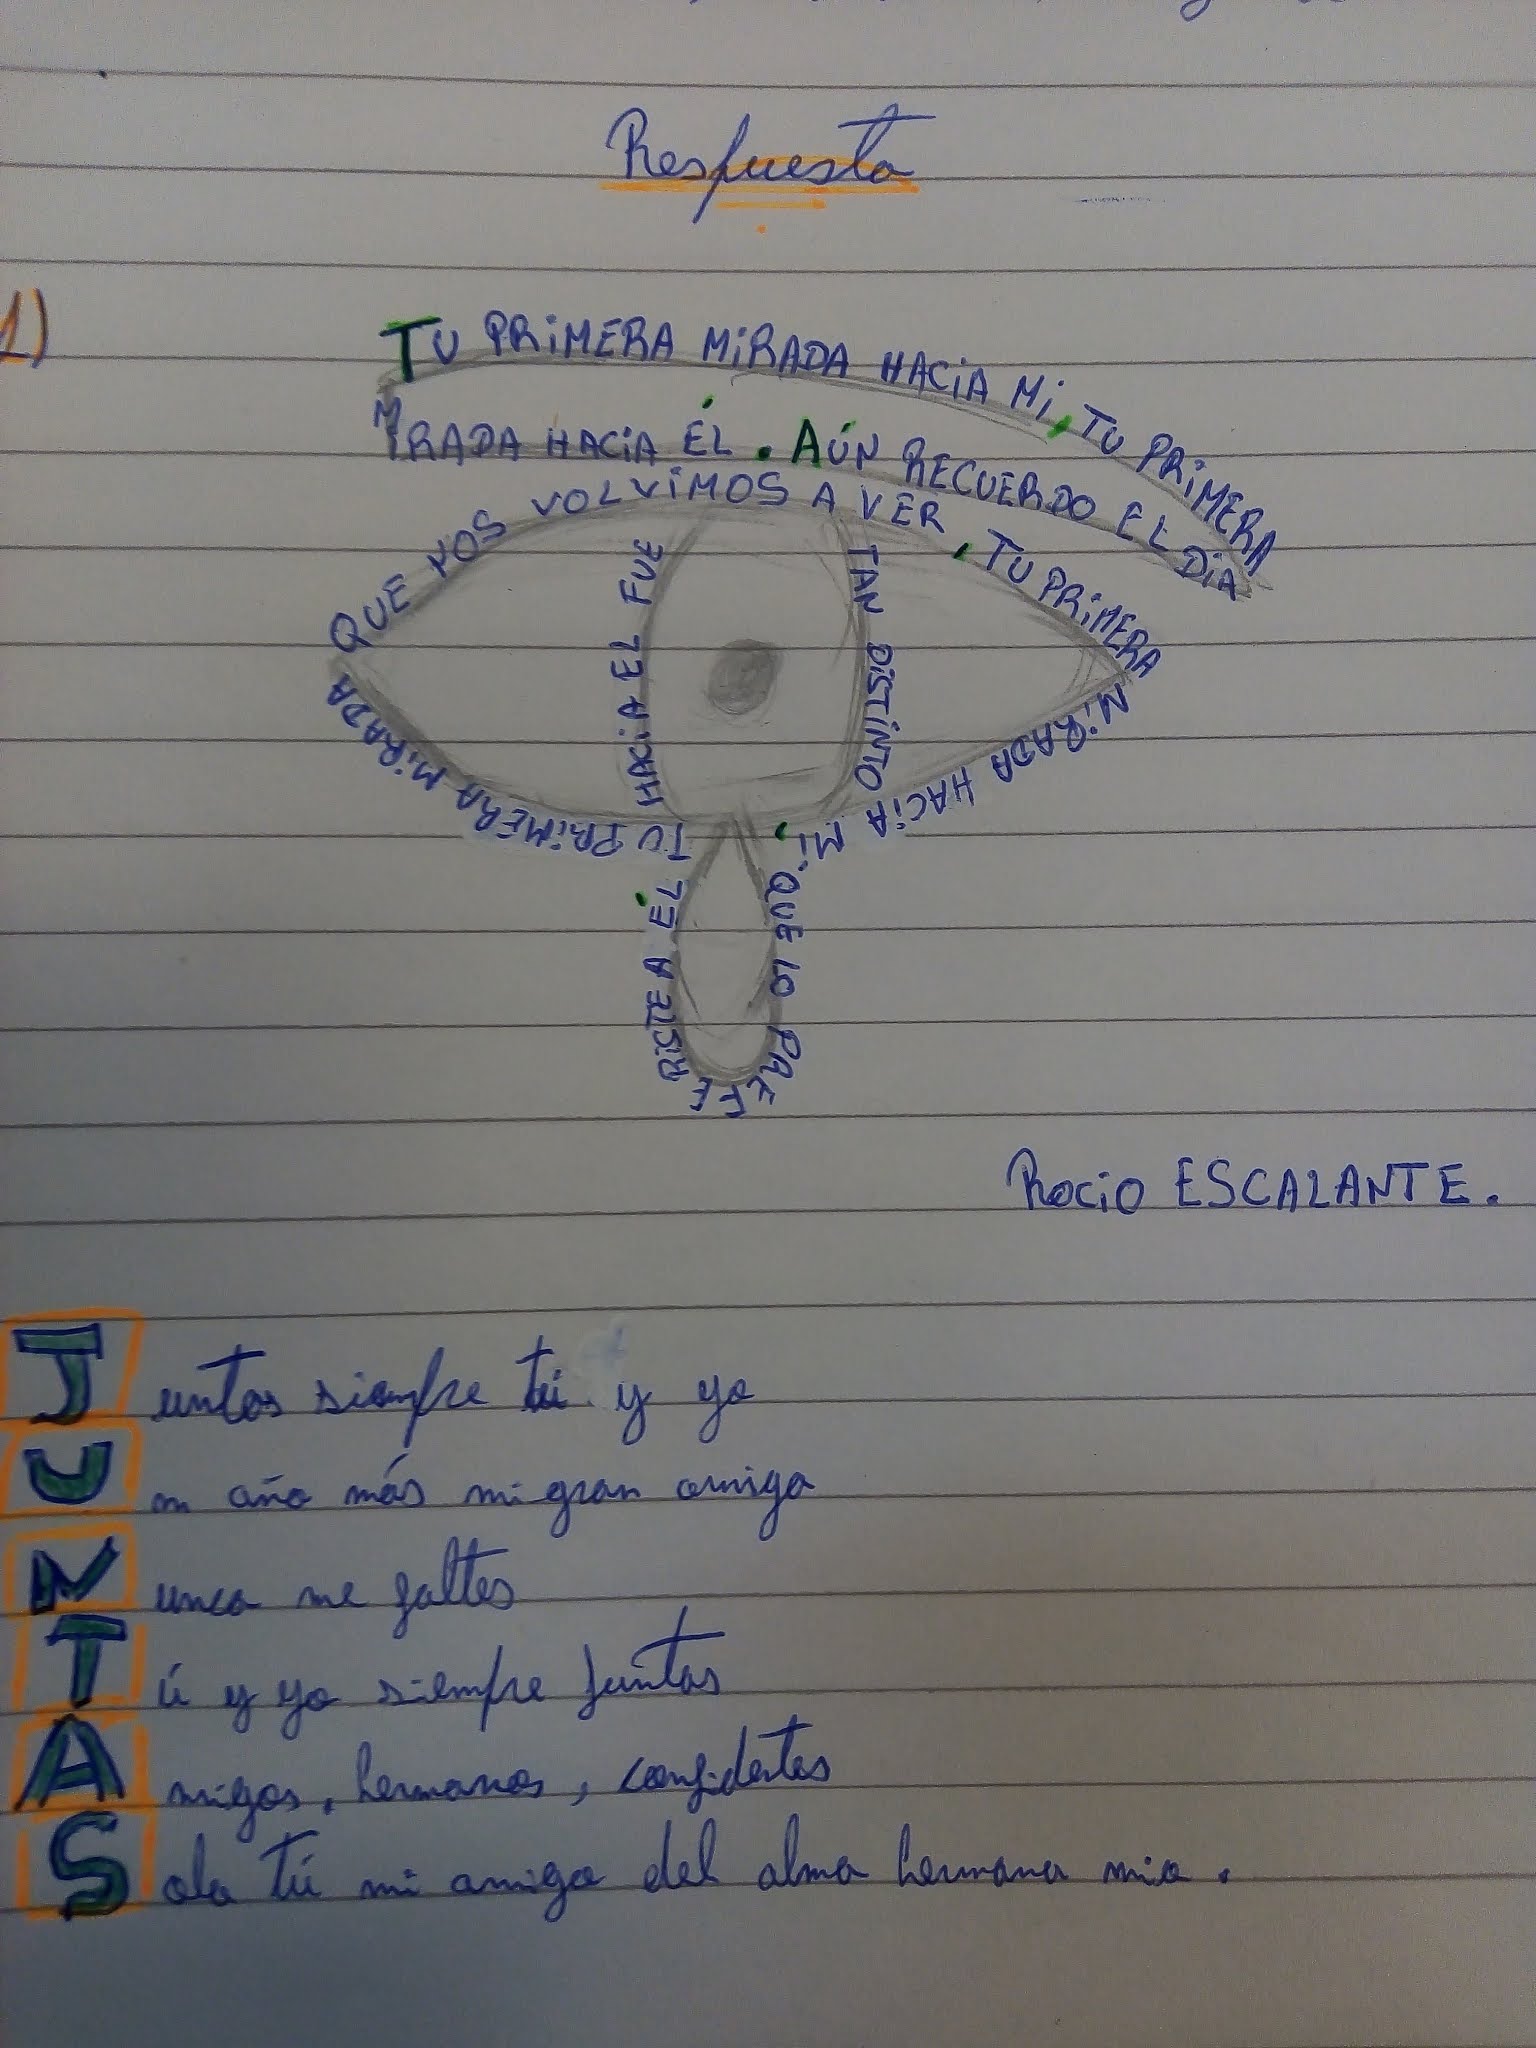 Respuesta
1)
TU PRIMERA MIRADA HACIA MI, TU PRIMERA
MIRADA HACIA ÉL. AÚN RECUERDO EL DIA
QUE NOS VOLVIMOS A VER, TU PRIMERA
MIRADA HACIA MI,
TU PRIMERA MIRADA
HACIA EL FUE
TAN DISTINTO
QUE LO PREFERISTE A ÉL
Rocio ESCALANTE.
Juntas siempre tú y yo
Un año más mi gran amiga
Nunca me faltes
Tú y yo siempre juntas
Amigas, hermanas, confidentes
Solo tú mi amiga del alma hermana mia.